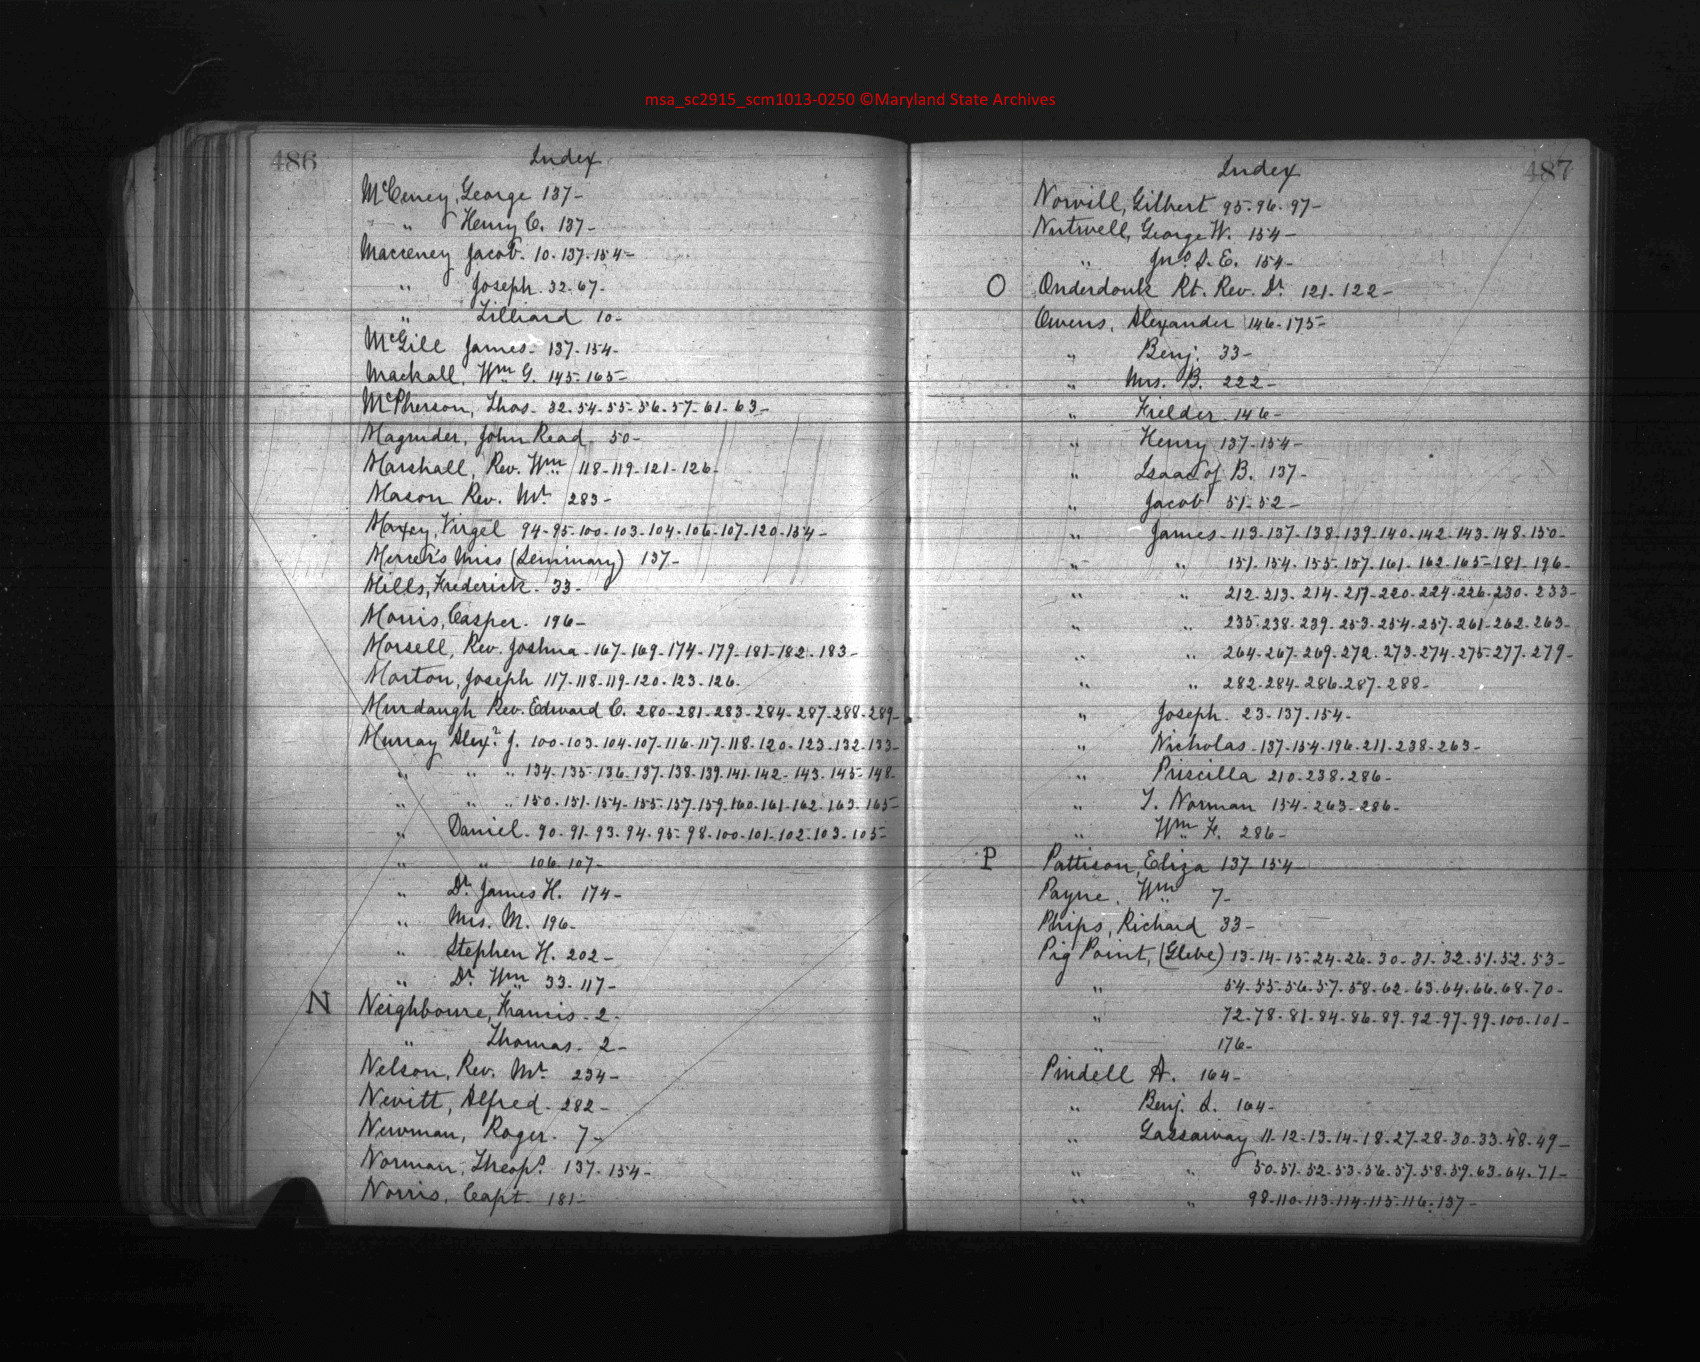 msa_sc2915_scm1013-0250 ©Maryland State Archives
486
Index
McCeney, George 137-
" Henry C. 137-
Macceney Jacob. 10-137-154-
" Joseph. 32-67-
" Zilliard 10-
McGill James- 137-154-
Mackall, Wm G. 145-165-
McPherson, Thos- 32-54-55-56-57-61-63-
Magruder, John Read 50-
Marshall, Rev. Wm 118-119-121-126-
Mason Rev. Mr. 283-
Maxcy, Virgel 94-95-100-103-104-106-107-120-154-
Mercer's Miss (Seminary) 137-
Mills, Frederick. 33-
Morris, Casper. 196-
Morsell, Rev. Joshua-167-169-174-179-181-182-183-
Morton, Joseph 117-118-119-120-123-126.
Murdaugh Rev. Edward C. 280-281-283-284-287-288-289-
Murray Alexr. J. 100-103-104-107-116-117-118-120-123-132-133-
" " " 134-135-136-137-138-139-141-142-143-145-148-
" " " 150-151-154-155-157-159-160-161-162-163-165-
" Daniel-90-91-93-94-95-98-100-101-102-103-105-
" " 106-107-
" Dr. James H. 174-
" Mrs. M. 196-
" Stephen H. 202-
" Dr. Wm 33-117-
N Neighboure, Francis-2-
" Thomas-2-
Nelson, Rev. Mr. 234-
Nevitt, Alfred-282-
Newman, Roger. 7-
Norman, Theops. 137-154-
Norris, Capt. 181-
487
Index
Norvill, Gilbert 95-96-97-
Nutwell, George W. 154-
" Jno S. E. 154-
O Onderdonk Rt. Rev. Dr. 121-122-
Owens, Alexander 146-175-
" Benj. 33-
" Mrs. B. 222-
" Fielder-146-
" Henry 137-154-
" Isaac of B. 137-
" Jacob 51-52-
" James-113-137-138-139-140-142-143-148-150-
" " 151-154-155-157-161-162-165-181-196-
" " 212-213-214-217-220-224-226-230-233-
" " 235-238-239-253-254-257-261-262-263-
" " 264-267-269-272-273-274-275-277-279-
" " 282-284-286-287-288-
" Joseph. 23-137-154-
" Nicholas-137-154-196-211-238-263-
" Priscilla 210-238-286-
" T. Norman 154-263-286-
" Wm F. 286-
P Pattison, Eliza 137-154-
Payne, Wm 7-
Phips, Richard 33-
Pig Point, (Glebe) 13-14-15-24-26-30-31-32-51-52-53-
" 54-55-56-57-58-62-63-64-66-68-70-
" 72-78-81-84-86-89-92-97-99-100-101-
" 176-
Pindell A. 164-
" Benj. S. 164-
" Gassaway 11-12-13-14-18-27-28-30-33-48-49-
" " 50-51-52-53-56-57-58-59-63-64-71-
" " 98-110-113-114-115-116-137-